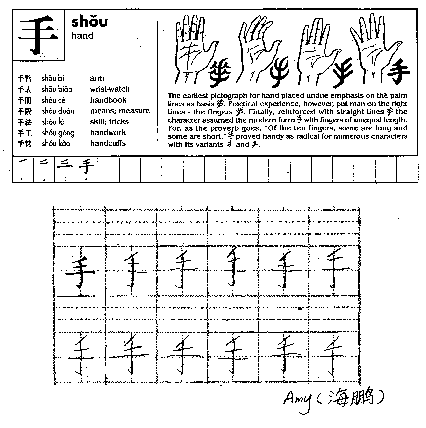 手 shǒu
hand
手臂 shǒu bì arm
手表 shǒu biǎo wrist-watch
手册 shǒu cè handbook
手段 shǒu duàn means; measure
手法 shǒu fǎ skill; tricks
手工 shǒu gōng handwork
手铐 shǒu kào handcuffs
手
The earliest pictograph for hand placed undue emphasis on the palm
lines as basis. Practical experience, however, put man on the right
lines - the fingers. Finally, reinforced with straight lines
the character assumed the modern form 手 with fingers of unequal length.
For, as the proverb goes, "Of the ten fingers, some are long and
some are short." 手 proved handy as radical for numerous characters
with its variants and
一 二 三 手
手 手 手 手 手 手
手 手 手 手 手 手
Amy (海鹏)